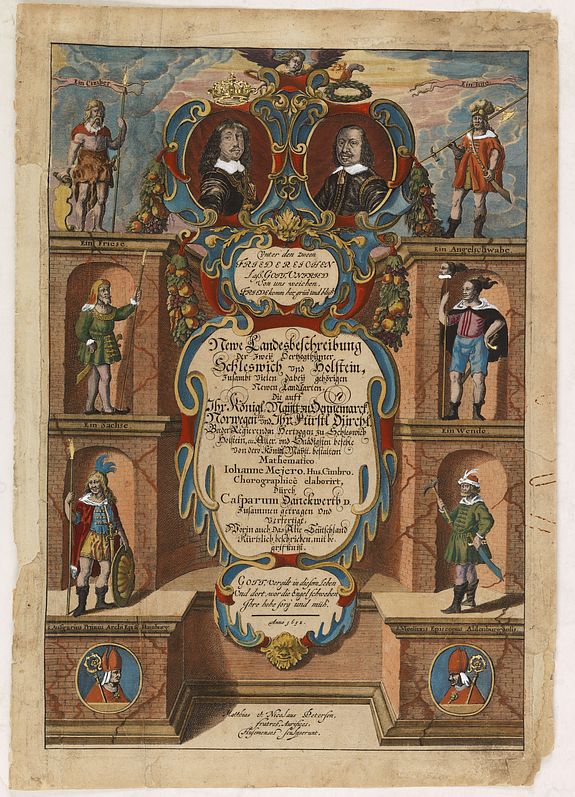 Ein Cimber
Ein Jüte
Ein Friese
Ein Angelschwabe
Unter den zween
FRIEDEREICHEN
Laß GOTT, UNFRIED
Von uns weichen,
FRIEDE komm her, grün und blüh
Newe Landesbeschreibung
Der Zweÿ Hertzogthümer
Schleswich vnd Holstein,
Zusambt Vielen dabeÿ gehörigen
Newen LandCarten,
Die auff
Ihr. Königl. Maÿtt. zu Dennemarck,
Norwegen und Ihr. Fürstl. Durchl.
Beeder Regierenden Hertzogen zu Schleswich
Holstein, Aller und Gnädigsten befehle
von dero Königl. Maÿtt. bestalten
Mathematico
Iohanne Mejero, Hus. Cimbro.
Chorographicè elaborirt,
Durch
Casparum Danckwerth D.
Zusammen getragen Und
Verfertigt,
Worin auch das Alte Teutschland
Kürtzlich beschrieben, mit be-
griffen ist.
Ein Sachse
Ein Wende
GOTT, Vergilt in diesem Leben
Und dort, wor die Engel schweben
Ihre hohe sorg und müh.
Anno 1652.
Ansgarius Primus Archi Epis. Hamburg.
Episcopus
Matthias & Nicolaus Petersen,
fratres, Aurifices,
Husemenses sculpserunt.